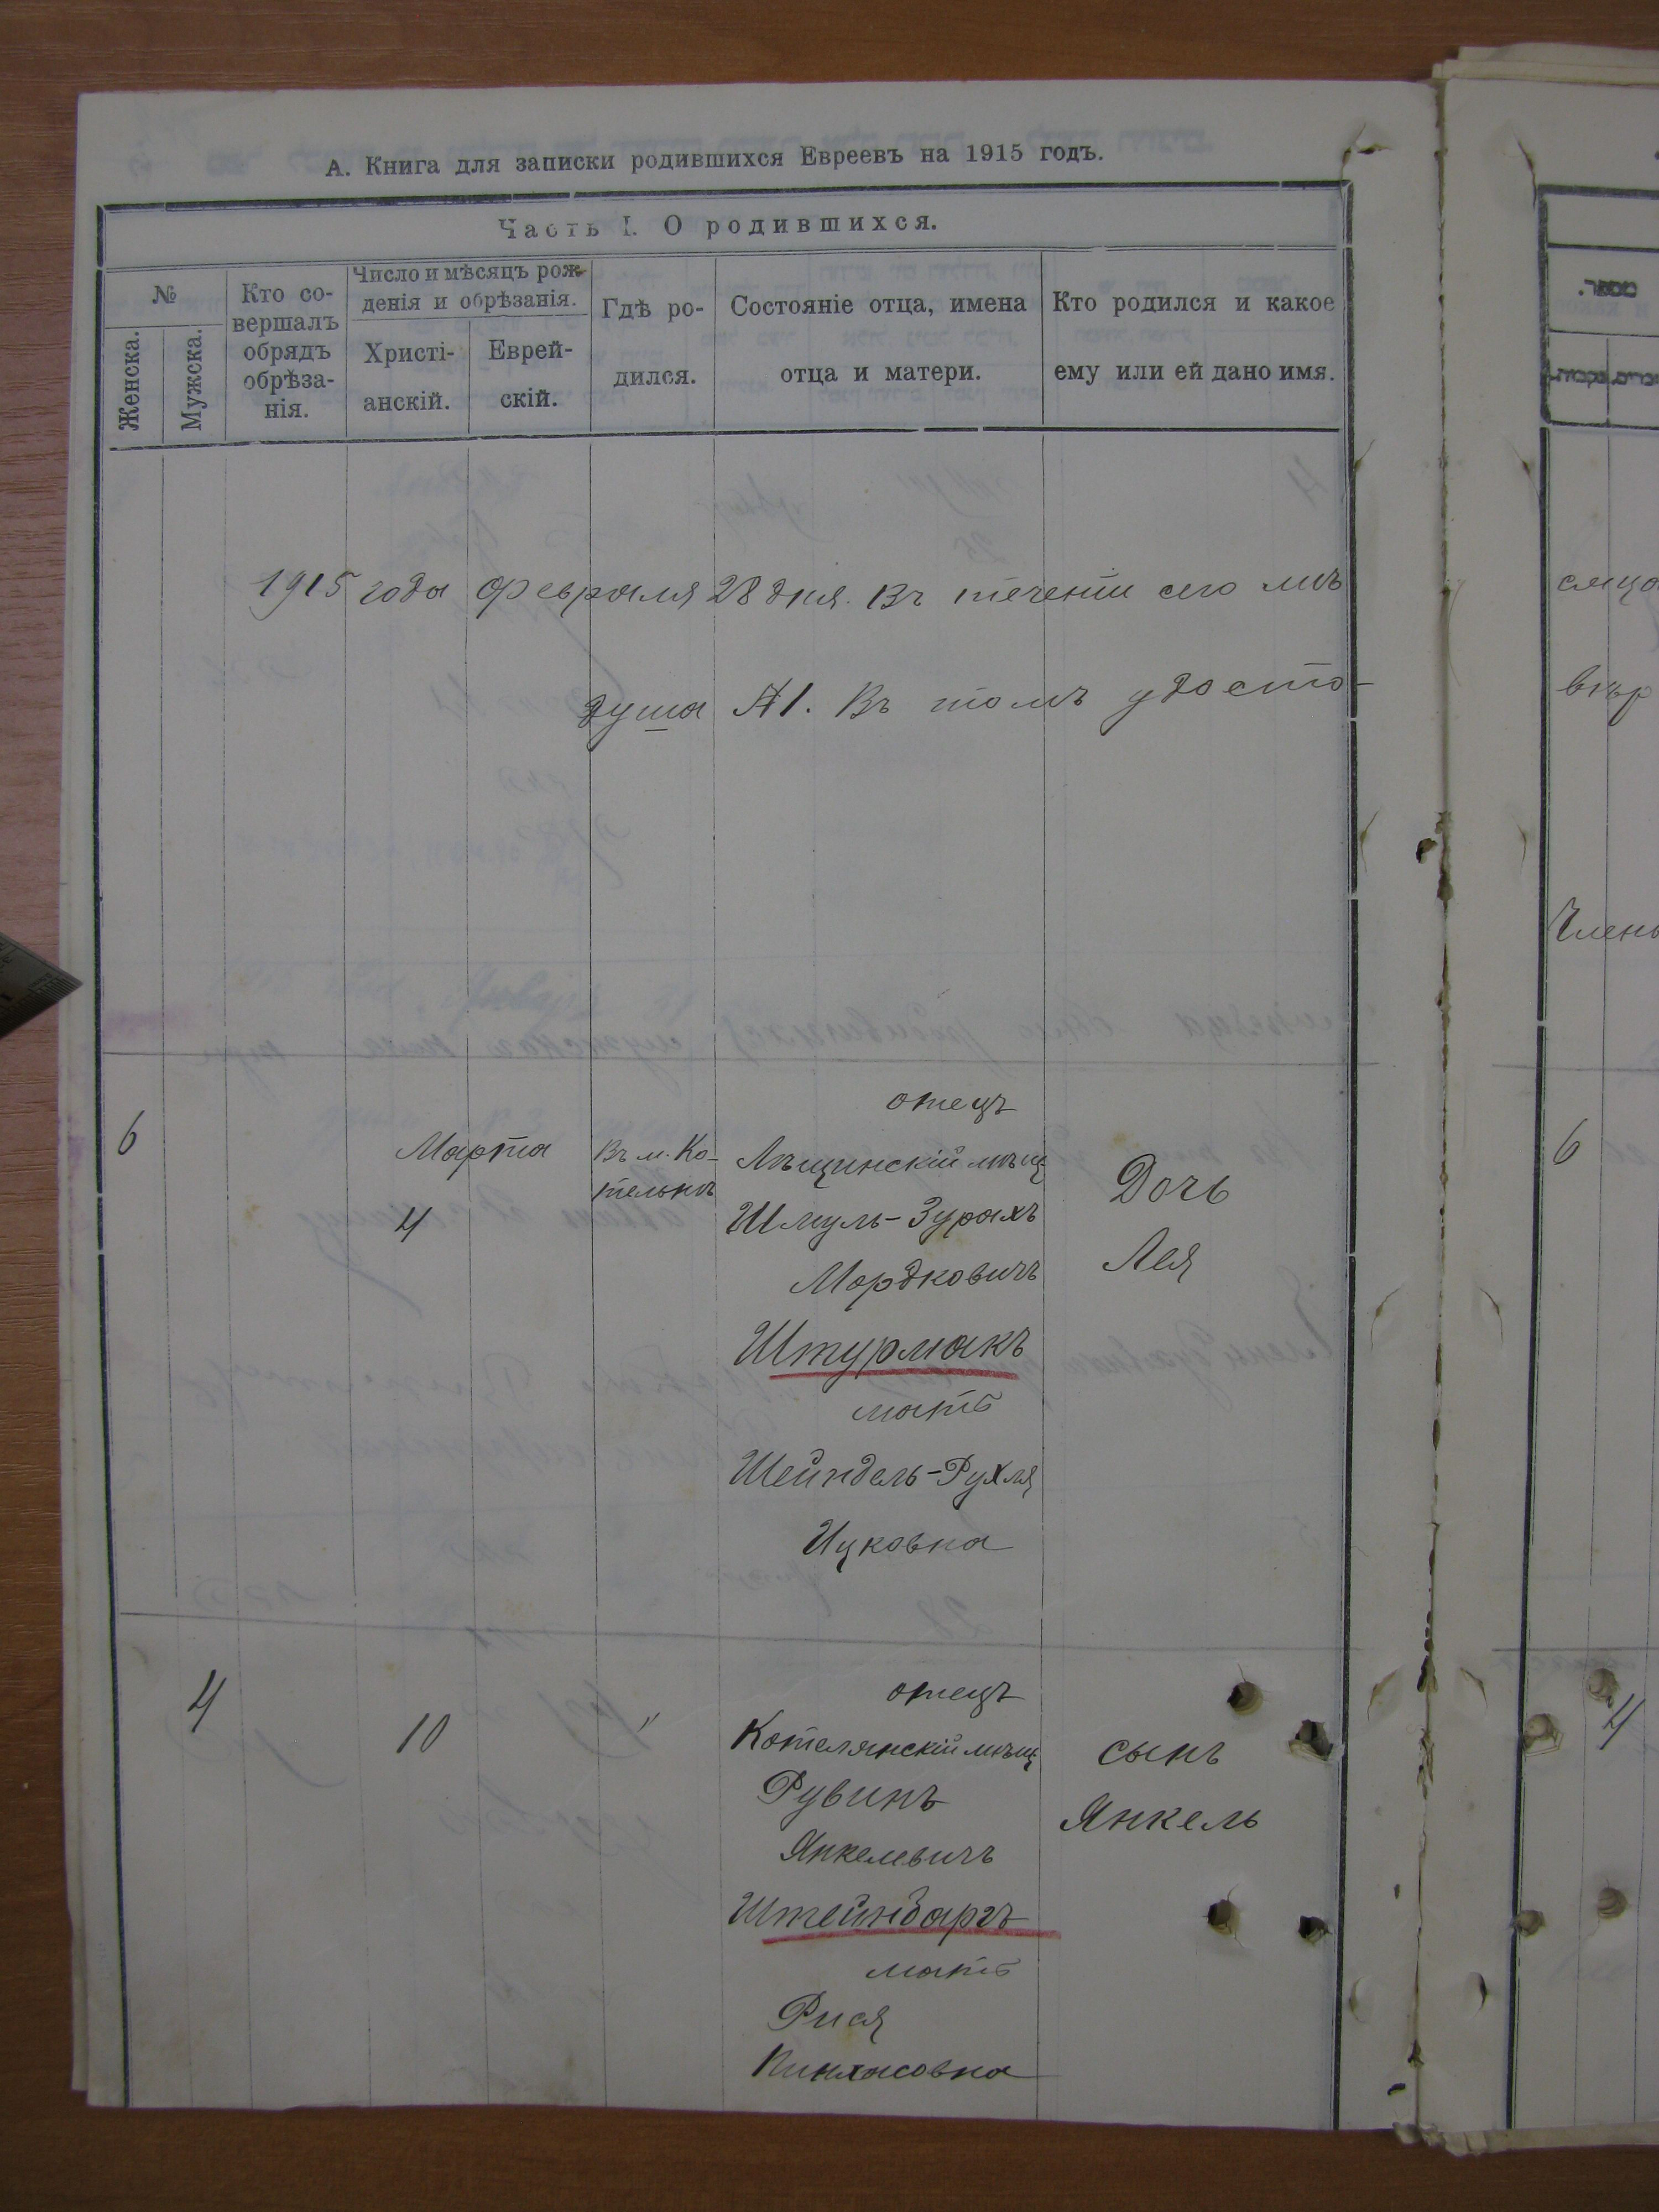 А. Книга для записки родившихся Евреевъ на 1915 годъ.
Часть I. О родившихся.
№
Женска.
Мужска.
Кто со-
вершалъ
обрядъ
обрѣза-
нія.
Число и мѣсяцъ рож-
денія и обрѣзанія.
Христі-
анскій.
Еврей-
скій.
Гдѣ ро-
дился.
Состояніе отца, имена
отца и матери.
Кто родился и какое
ему или ей дано имя.
1915 года Февраля 28 дня. Въ теченіи сего мѣ
душа №1. Въ томъ удосто-
6
Марта
4
Въ м. Ко-
тельнѣ
отецъ
Лѣщинскій мѣщ
Шмуль-Зурахъ
Мордковичъ
Штурмакъ
мать
Шейндель-Рухля
Ицковна
Дочь
Лея
4
10
"
отецъ
Котелянскій мѣщ
Рувинъ
Янкелевичъ
Штейнбаргъ
мать
Рися
Пинхасовна
сынъ
Янкель
сяца
вѣр
Члены
6
4